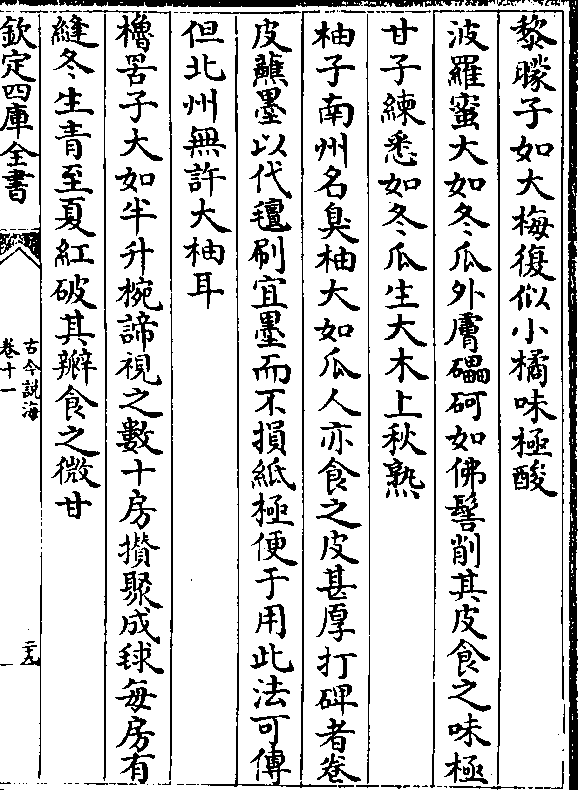 黎朦子如大梅復似小橘味極酸
波羅蜜大如冬瓜外膚礧砢如佛髻削其皮食之味極
甘子練悉如冬瓜生大木上秋熟
柚子南州名臭柚大如瓜人亦食之皮甚厚打碑者卷
皮蘸墨以代氊刷宜墨而不損紙極便于用此法可傳
但北州無許大柚耳
櫓罟子大如半升椀諦視之數十房攢聚成毬每房有
縫冬生青至夏紅破其瓣食之微甘
欽定四庫全書
古今說海
卷十一
二十九